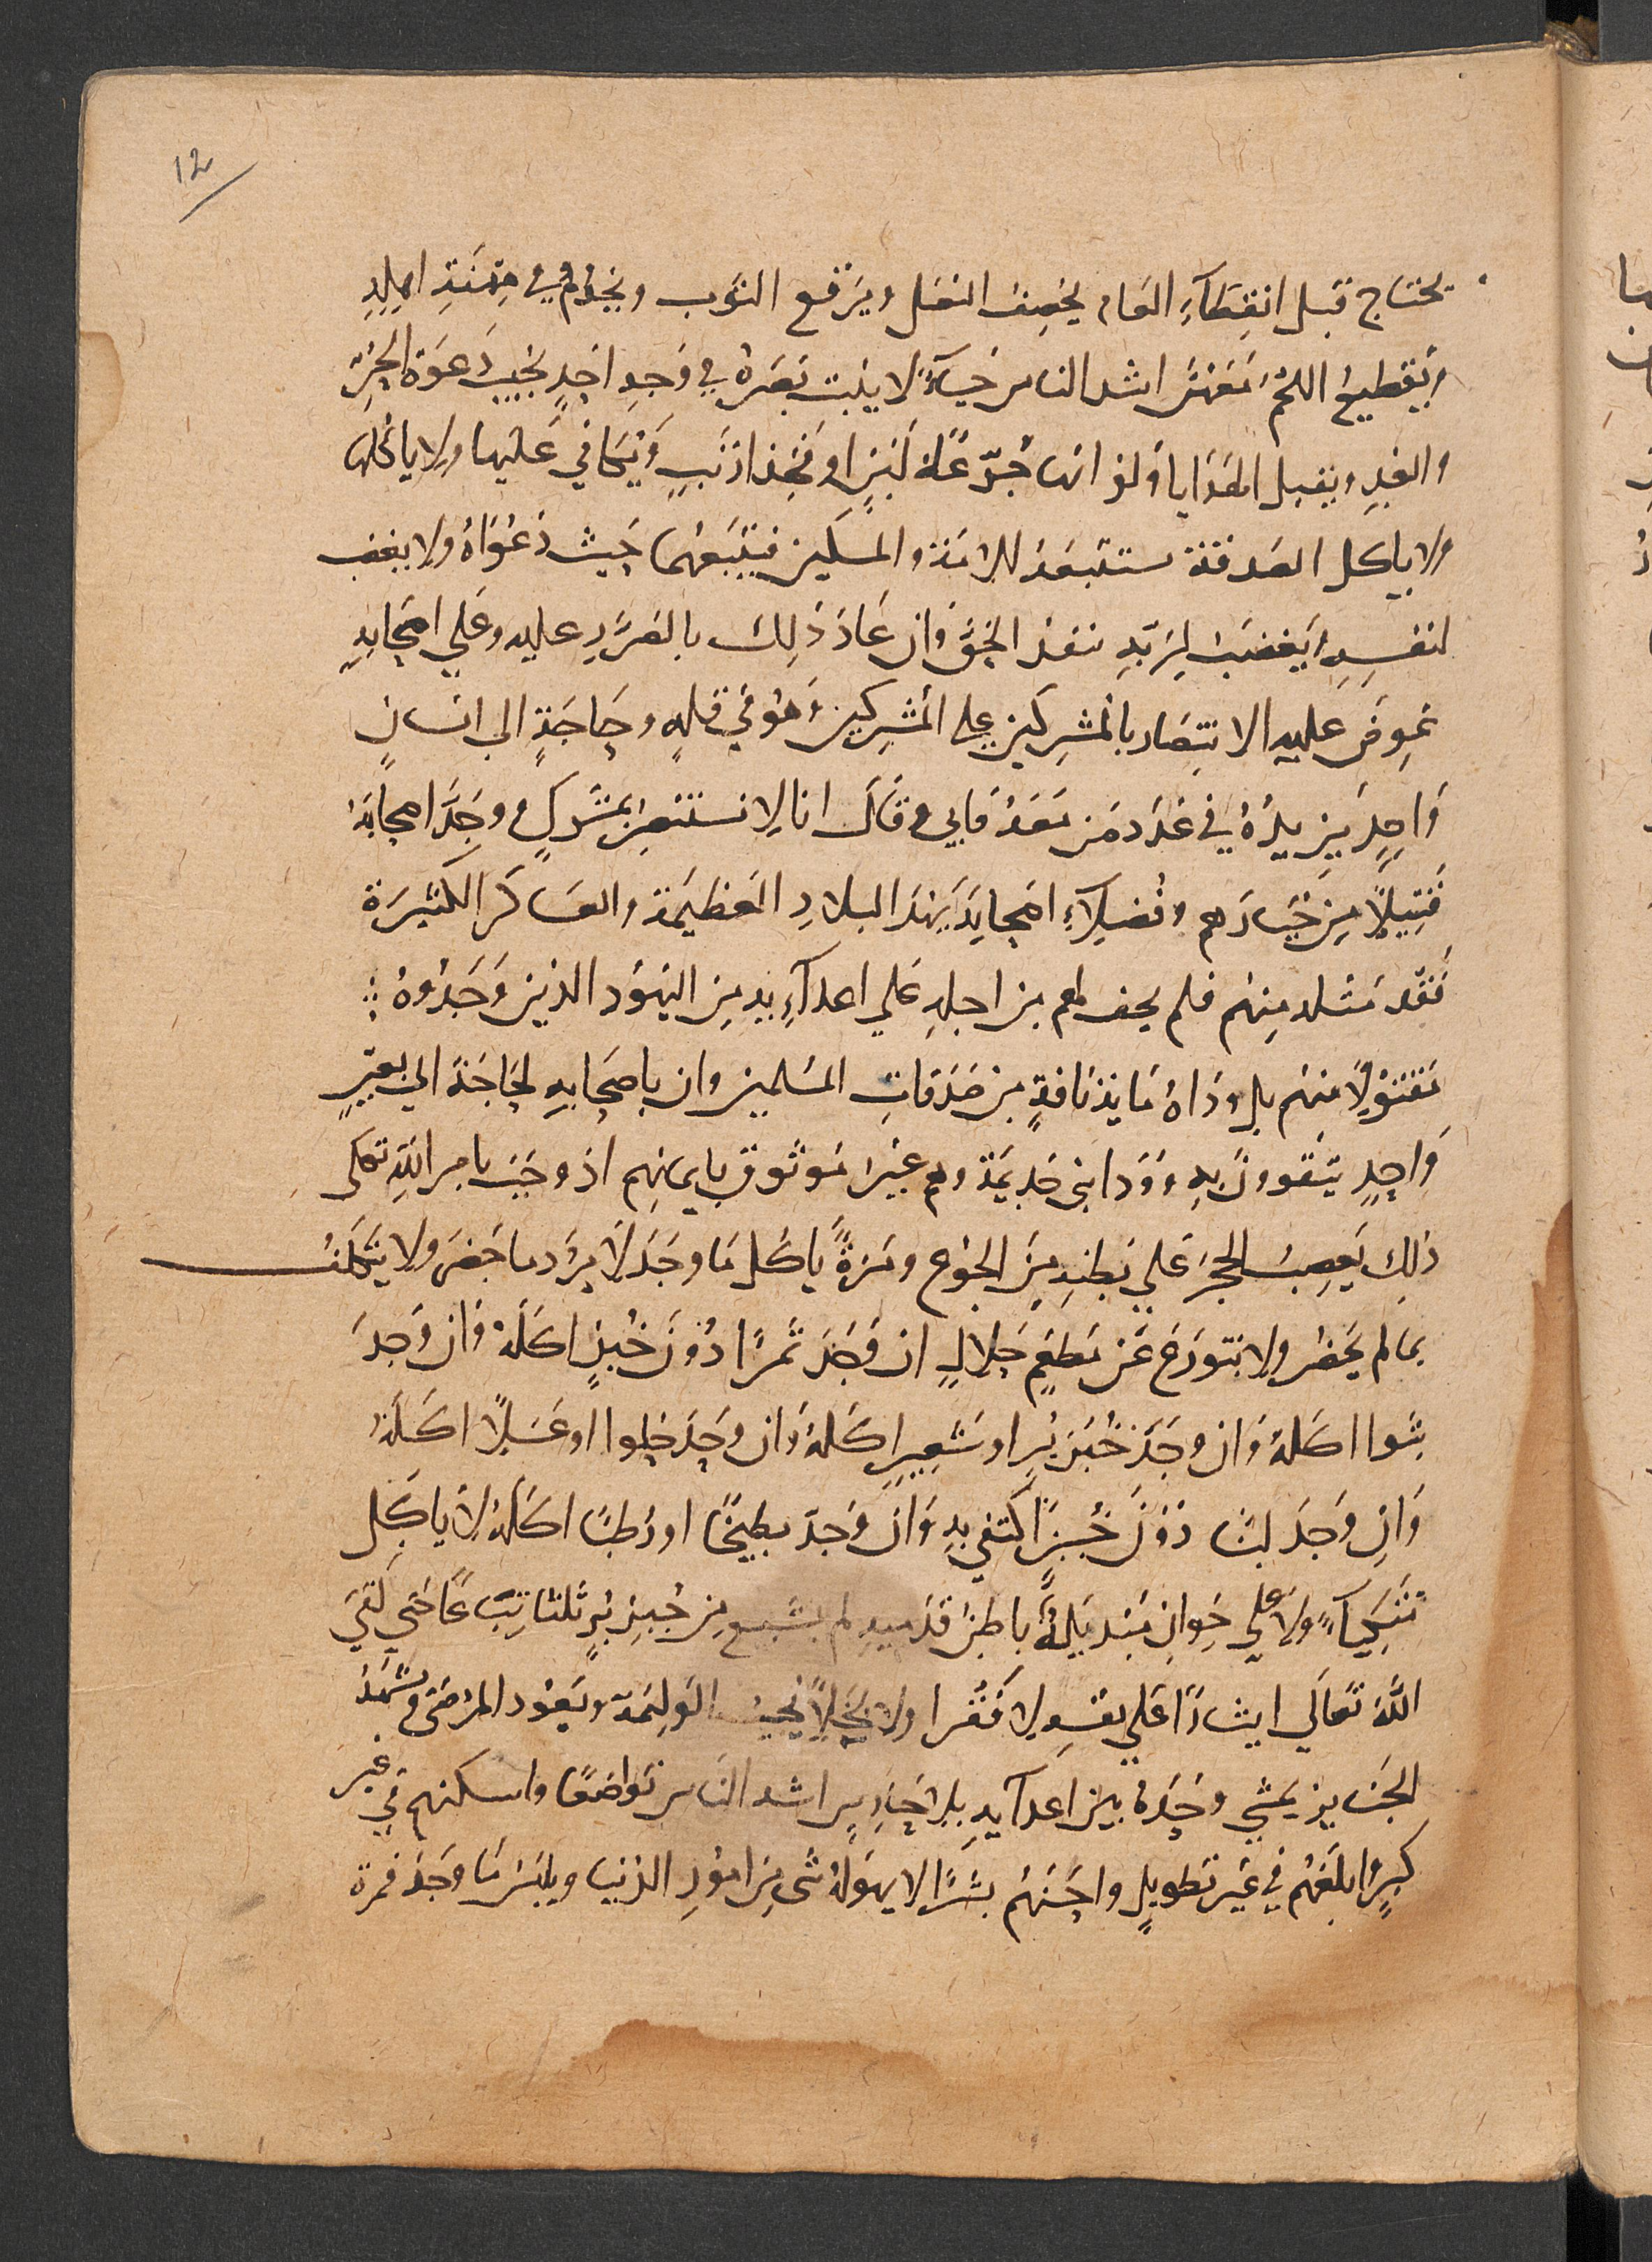 12
يحتاج قبل انقِضَآءِ العَام يخصِفُ النعْل ويَرْقع الثوب ويَخْدُم في مِهْنَةِ اهلِهِ
وَيقطعُ اللحْمُ مَعَهُنَّ اشد الناس حَيَآءً لا يثبت بَصَرهُ في وَجهِ احَدٍ يجيبُ دَعوَة الحُرّ
والعَبدِ ويقبل الهَدَايا وَلوْ انهَا جُرْعَة لبَنٍ او فخِذ ارْنَبٍ وَيُكافي عَليْها ولا ياكلهَا
ولا ياكل الصَدقة تستتبعهُ الامَة والمسكين فيتبَعهُمَا حَيث دَعوَاهُ ولا يغضب
لنفسِهِ وَيَغضبُ لِرَبّهِ ينفذ الحَقَّ وَان عَادَ ذَلِكَ بالضرَرِ عليه وعَلي اصْحَابهِ
عُرِضَ عليه الانتِصَار بالمُشرِكين على المُشرِكين وَهُوَ في قلةٍ وحَاجَةٍ الى انسانٍ
وَاحِدٍ يَزيدُهُ في عَدَد مَن مَعَهُ فابي وقَال انا لا نستنصِرُ بمشركٍ ووجَدَ اصحابَهُ
قَتِيلاً مِن خيَارهم وفضلاءِ اصْحابِهِ يهدُّ البلادِ العَظيمَة والعسَاكر الكثيرَة
فَقدُ مثله مِنهم فلم يحف لهم من اجلِهِ عَلي اعدآءِ يهِ مِن اليَهُود الذين وَجَدُوهُ
مَقتُوْلاً مِنهُم بل وداهُ مَايَة نَاقةٍ مِن صَدَقاتِ المسْلمين وان باصحَابِهِ لحَاجَة الي بَعيرٍ
وَاحِدٍ يَتقوونَ بهِ وَوَدا بني جَديمَة وهم غيرُ مَوثوقٍ بايمانِهم اذ وَجَبَ بامر اللّهِ تعَالى
ذلِكَ يَعصِبُ الحجرَ عَلي بَطنِهِ مِنَ الجُوع ومَرَةً ياكل مَا وجَدَ لَا يَرد ما حَضرَ ولا يَتكلف
بما لم يَحضر ولا يتورَعُ عَن مَطعَمٍ حَلالٍ ان وَجَدَ تَمرًا دُوْنَ خُبْزٍ اكلَهُ وَان وَجدَ
شوا اكلهُ وَان وجَدَ خُبْزَ بُرٍ او شَعِيرٍ اكَلهُ وَان وَجَدَ حلوا او عَسَلاً اكَلَهُ
وَان وَجَدَ لبنا دُوْنَ خُبزٍ اكتفي بهِ وَان وَجدَ بطيخًا او رُطبًا اكلهُ لا ياكل
مُتّكِيآءً ولا علي خِوَانٍ مَنديلهُ باطن قدَميهِ لم يشبع مِن خبزِ بُرٍ ثلثا تِبَاعًا حَتي لقيَ
اللّهَ تعَالي ايثارًا عَلي نفسِهِ لا فَقرا ولا بُخلاً يُجيبُ الوَليمَة ويَعُود المرْضي ويَشْهَدُ
الجنايز يَمشي وَحدَهُ بين اعدآيهِ بلا حَارسٍ اشد الناس تَوَاضعًا واسكنهم في غير
كِبرٍ وَابلَغهُم في غير تطويلٍ واحسَنهُم بِشرًا لا يهوله شئ مِن امُورِ الدُنيا ويلبس مَا وجَدَ فمَرة